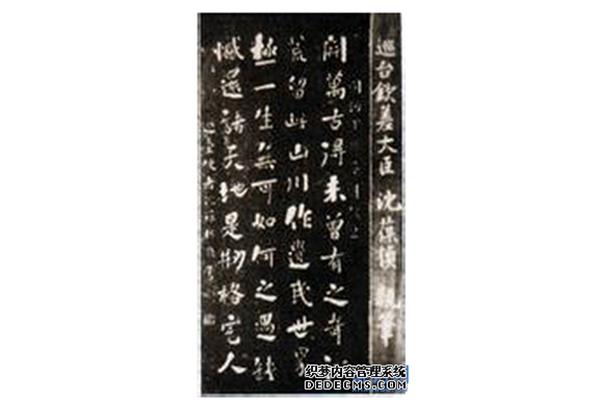 巡台欽差大臣 沈葆楨 親筆
開萬古得未曾有之奇
荒留此山川作遺民世界
極一生無可如何之遇缺
憾還諸天地是刱格完人
织梦内容管理系统
DEDECMS.COM